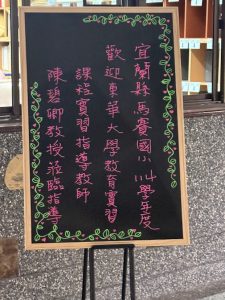 宜蘭縣馬賽國小114學年度
歡迎東華大學教育實習
課程實習指導教師
陳碧卿教授蒞臨指導